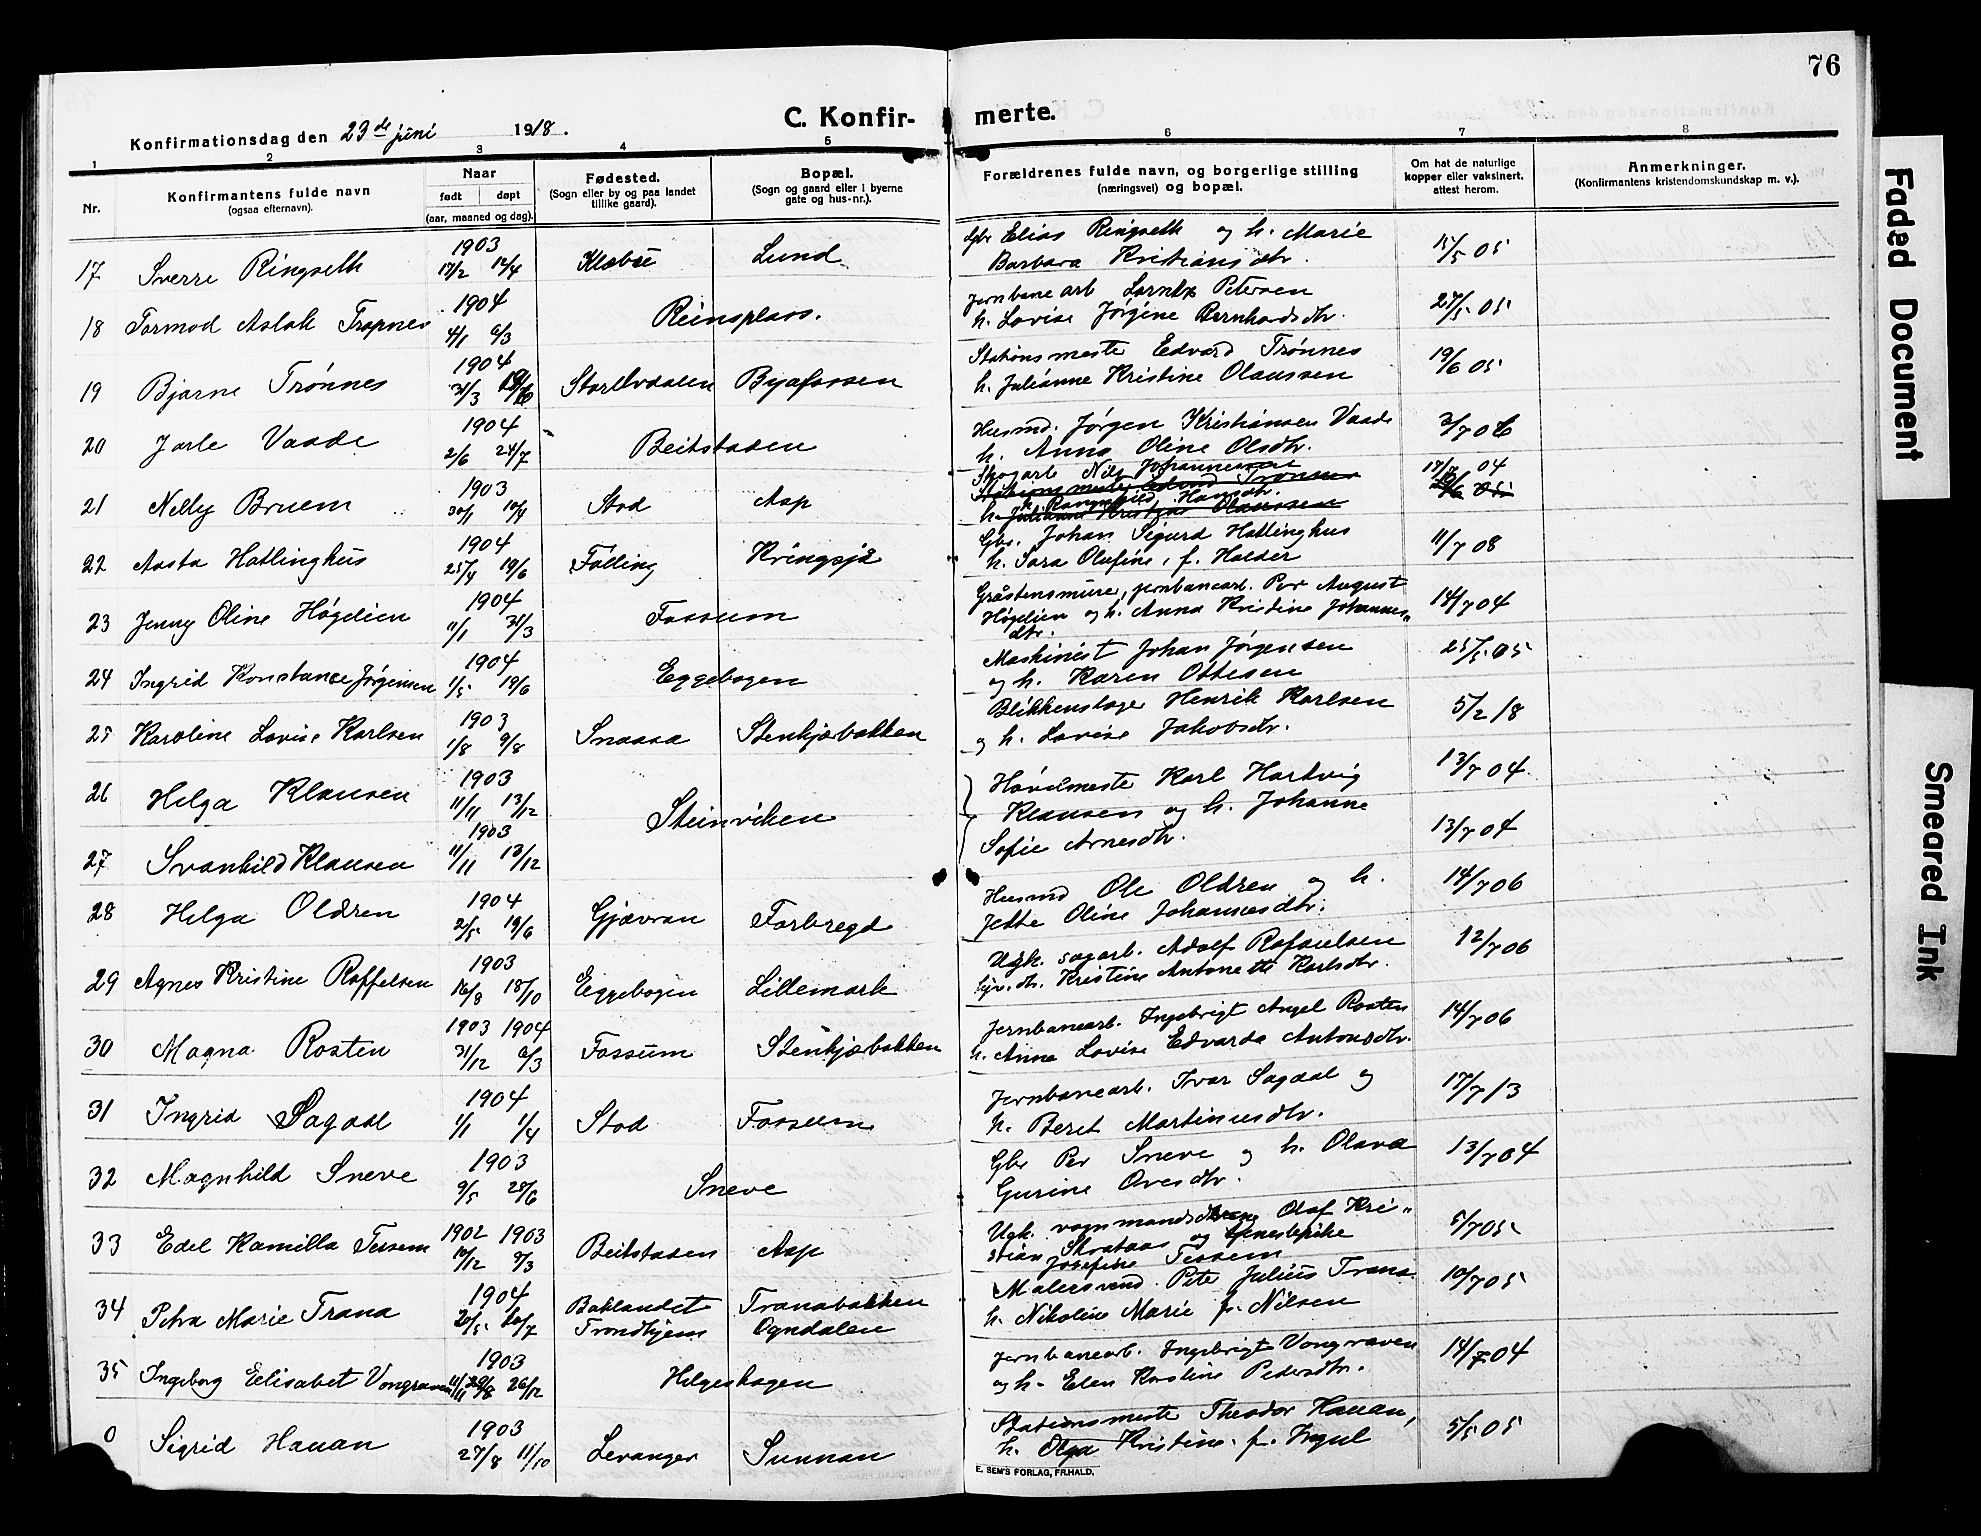 76
Konfirmationsdag den 23de juni 1918.
C. Konfir- merte.
1 2 3 4 5 6 7 8
Nr.
Konfirmantens fulde navn
(ogsaa efternavn).
Naar
født døpt
(aar, maaned og dag).
Fødested.
(Sogn eller by og paa landet
tillike gaard).
Bopæl.
(Sogn og gaard eller i byerne
gate og hus-nr.).
Forældrenes fulde navn, og borgerlige stilling
(næringsvei) og bopæl.
Om hat de naturlige
kopper eller vaksinert,
attest herom.
Anmerkninger.
(Konfirmantens kristendomskundskap m. v.).
17 Sverre Ringseth 1903 Klæbu Lund Gbr Elias Ringseth og h. Marie
Barbara Kristiansdtr. 15/5 05
18 Tormod Aslak Trapnes 1904 4/1 6/3 Reinsplass. Jernbanearb Lorents Petersen
h. Lovise Jørgine Bernhardsdtr. 27/5 05
19 Bjarne Trønnes 1904 Byafossen Stationsmester Edvard Trønnes
h. Julianne Kristine Olaussen 19/6 05
20 Jarle Vaade 1904 2/6 24/7 Beitstaden Husmd. Jørgen Kristiansen Vaade
h. Anna Oline Olsdtr. 3/7 06
21 Nelly Bruem 1903 30/1 Stod Asp Skogarb Nils Johannesen
Stationsmester Edvard Trønnes
h. Ragnhild Hansdtr.
h. Julianne Kristine Olaussen 04
22 Aasta Hatlinghus 1904 25/4 19/6 Følling Kringsjå Gbr. Johan Sigurd Hatlinghus
h. Sara Olufine, f. Halder 11/7 08
23 Jenny Oline Høgelien 1904 11/1 31/3 Fossum Gråstensmurer, jernbanearb. Per August
Høgelien og h. Anna Kristine Johannes-
dtr. 14/7 04
24 Ingrid Konstance Jørgensen 1904 1/5 19/6 Eggebogen Maskinist Johan Jørgensen
og h. Karen Ottesen 25/5 05
25 Karoline Lovise Karlsen 1903 1/8 9/8 Snaasa Stenkjærbakken Blikkenslager Henrik Karlsen
og h. Lovise Jakobsdtr. 5/2 18
26 Helga Klausen 1903 11/11 13/12 Steinviken Høvelmester Karl Hartvig
Klausen og h. Johanne
Sofie Arnesdtr. 13/7 04
27 Svanhild Klausen 1903 11/11 13/12 13/7 04
28 Helga Oldren 1904 2/5 19/6 Gjævran Forbregd Husmd Ole Oldren og h.
Jette Oline Johannesdtr. 14/7 06
29 Agnes Kristine Raffelsen 1903 16/8 18/10 Eggebogen Lillemark Ugk. sagarb. Adolf Rafaelsen
Kristine Antonette Karlsdtr. 12/7 06
30 Magna Rosten 1903 1904 31/12 6/3 Fossum Stenkjærbakken Jernbanearb. Ingebrigt Angel Rosten
h. Anne Lovise Edvarda Antonsdtr. 14/7 06
31 Ingrid Sagdal 1904 1/1 1/4 Stod Fossum Jernbanearb. Ivar Sagdal og
h. Beret Martinusdtr. 17/7 13
32 Magnhild Sneve 1903 9/5 28/6 Sneve Gbr Per Sneve og h. Olava
Gurine Ovesdtr. 13/7 04
33 Edel Kamilla Tessem 1902 1903 Beitstaden Asp Ugk. vognmandsdreng Olaf Kri-
stian Skrataas og tjenestepike
Josefine Tessem 5/7 05
34 Petra Marie Trana 1904 Baklandet
Trondhjem Tranabakken
Ogndalen Malersvend. Peter Julius Trana
h. Nikoline Marie f. Nilsen 10/7 05
35 Ingeborg Elisabet Vongraven 1903 26/12 Helgeshagen Jernbanearb. Ingebrigt Vongraven
og h. Elen Karoline Pedersdtr. 14/7 04
0 Sigrid Hauan 1903 27/8 11/10 Levanger Sunnan Stationsmester Theodor Hauan,
h. Olga Kristine f. Ingul 5/5 05
E. SEM'S FORLAG, FR.HALD.
Faded Document
Smeared Ink